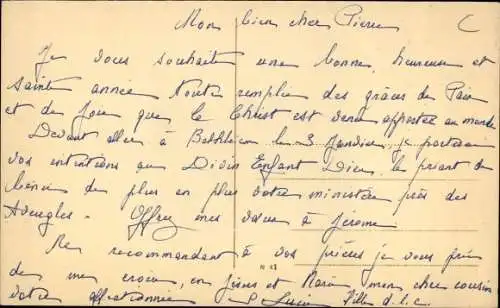 Mon bien cher Pierre
Je vous souhaite une bonne, heureuse et
sainte année toute remplie des grâces de Paix
et de Joie que le Christ est venu apporter au monde
Devant aller à Bethléem le 3 Janvier, je porterai
vos intentions au Divin Enfant Dieu, le priant de
bénir de plus en plus votre ministère près des
Aveugles - Offrez mes vœux à Jérôme.
Me recommandant à vos prières je vous prie
N 13
de me croire, en Jésus et Marie, mon cher cousin
votre affectionnée Sr Lucie Fille d. l. C.
C